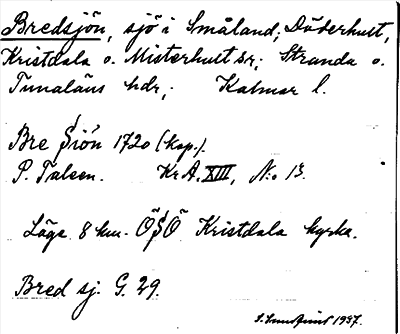 Bredsjön, sjö i Småland, Döderhult,
Kristdala o. Misterhult sr; Stranda o.
Tunaläns hdr; Kalmar l.
Bre Siön 1720 (kop.).
P. Talsen. Kr A. XIII, No 13.
Läge 8 km. ÖSÖ Kristdala kyrka.
Bred sj. G. 29.
1937.